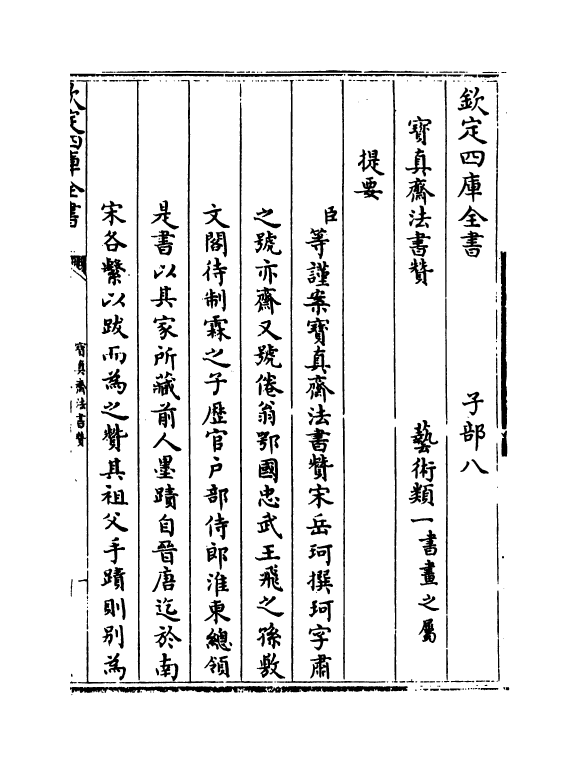 欽定四庫全書　子部八
寶真齋法書贊　藝術類一書畫之屬
提要
臣等謹案寶真齋法書贊宋岳珂撰珂字肅
之號亦齋又號倦翁鄂國忠武王飛之孫敷
文閣待制霖之子歴官户部侍郎淮東總領
是書以其家所藏前人墨蹟自晉唐迄於南
宋各繫以跋而為之贊其祖父手蹟則别為
欽定四庫全書
寶真齋法書贊